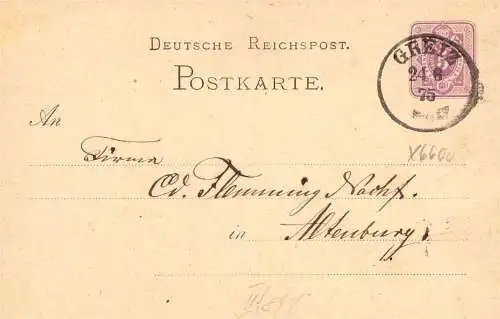 DEUTSCHE REICHSPOST.
POSTKARTE.
GREIZ
24 6
75
An
Firma
X6600
Ed. Flemming Nachf.
in Altenburg.